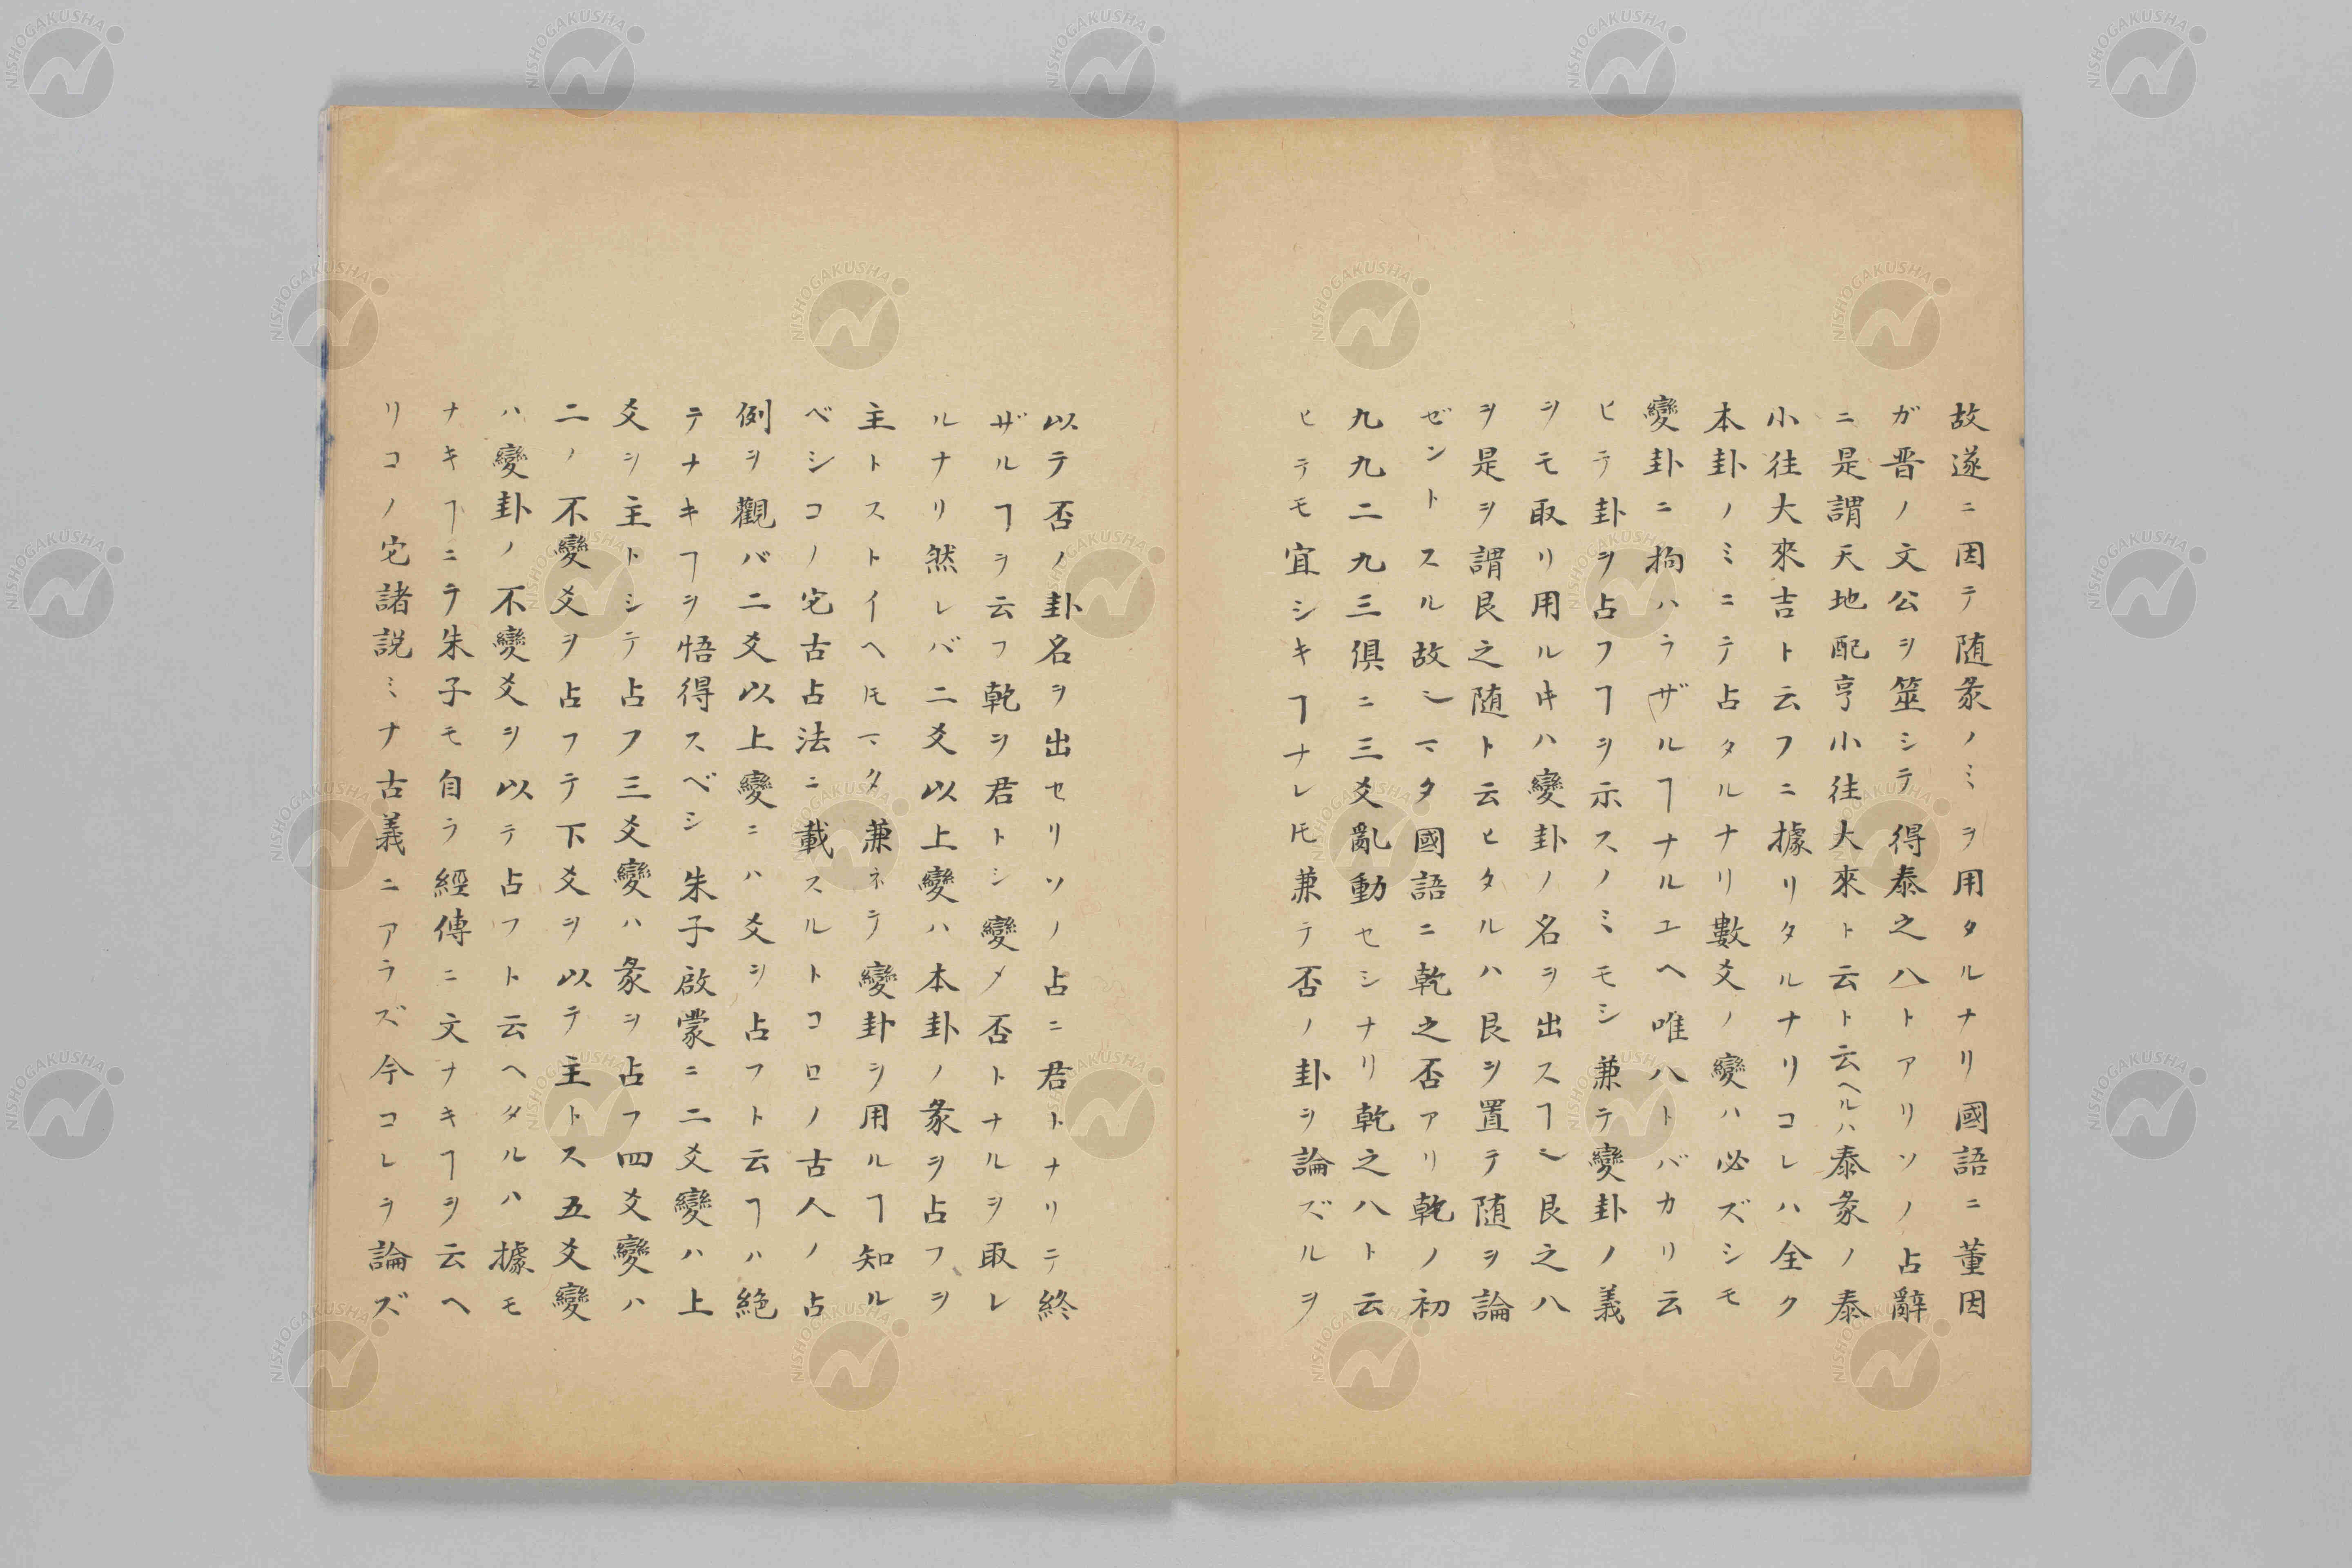 故遂ニ因テ随彖ノミヲ用タルナリ國語ニ董因
ガ晋ノ文公ヲ筮シテ得泰之八トアリソノ占辭
ニ是謂天地配亨小往大來ト云ト云ヘルハ泰彖ノ泰
小往大來吉ト云フニ據リタルナリコレハ全ク
本卦ノミニテ占タルナリ數爻ノ變ハ必ズシモ
變卦ニ拘ハラザルヿナルユヘ唯八トバカリ云
ヒテ卦ヲ占フヿヲ示スノミモシ兼テ變卦ノ義
ヲモ取リ用ルㇳキハ變卦ノ名ヲ出スヿ〻艮之八
ヲ是ヲ謂艮之随ト云ヒタルハ艮ヲ置テ随ヲ論
ゼントスル故〻マタ國語ニ乾之否アリ乾ノ初
九九二九三俱ニ三爻亂動セシナリ乾之八ト云
ヒテモ宜シキヿナレ𪜈兼テ否ノ卦ヲ論ズルヲ
以テ否ノ卦名ヲ出セリソノ占ニ君トナリテ終
ザルヿヲ云フ乾ヲ君トシ變メ否トナルヲ取レ
ルナリ然レバ二爻以上變ハ本卦ノ彖ヲ占フヲ
主トストイヘ𪜈マタ兼ネテ變卦ヲ用ルヿ知ル
ベシコノ宅古占法ニ載スルトコロノ古人ノ占
例ヲ觀バ二爻以上變ニハ爻ヲ占フト云ヿハ絶
テナキヿヲ悟得スベシ朱子啟蒙ニ二爻變ハ上
爻ヲ主トシテ占フ三爻變ハ彖ヲ占フ四爻變ハ
二ノ不變爻ヲ占フテ下爻ヲ以テ主トス五爻變
ハ變卦ノ不變爻ヲ以テ占フト云ヘタルハ據モ
ナキヿニテ朱子モ自ラ經傳ニ文ナキヿヲ云ヘ
リコノ宅諸説ミナ古義ニアラズ今コレヲ論ズ